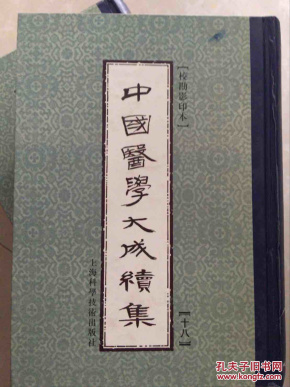 【校勘影印本】
中國醫學大成續集
【十八】
上海科學技術出版社
孔夫子旧书网